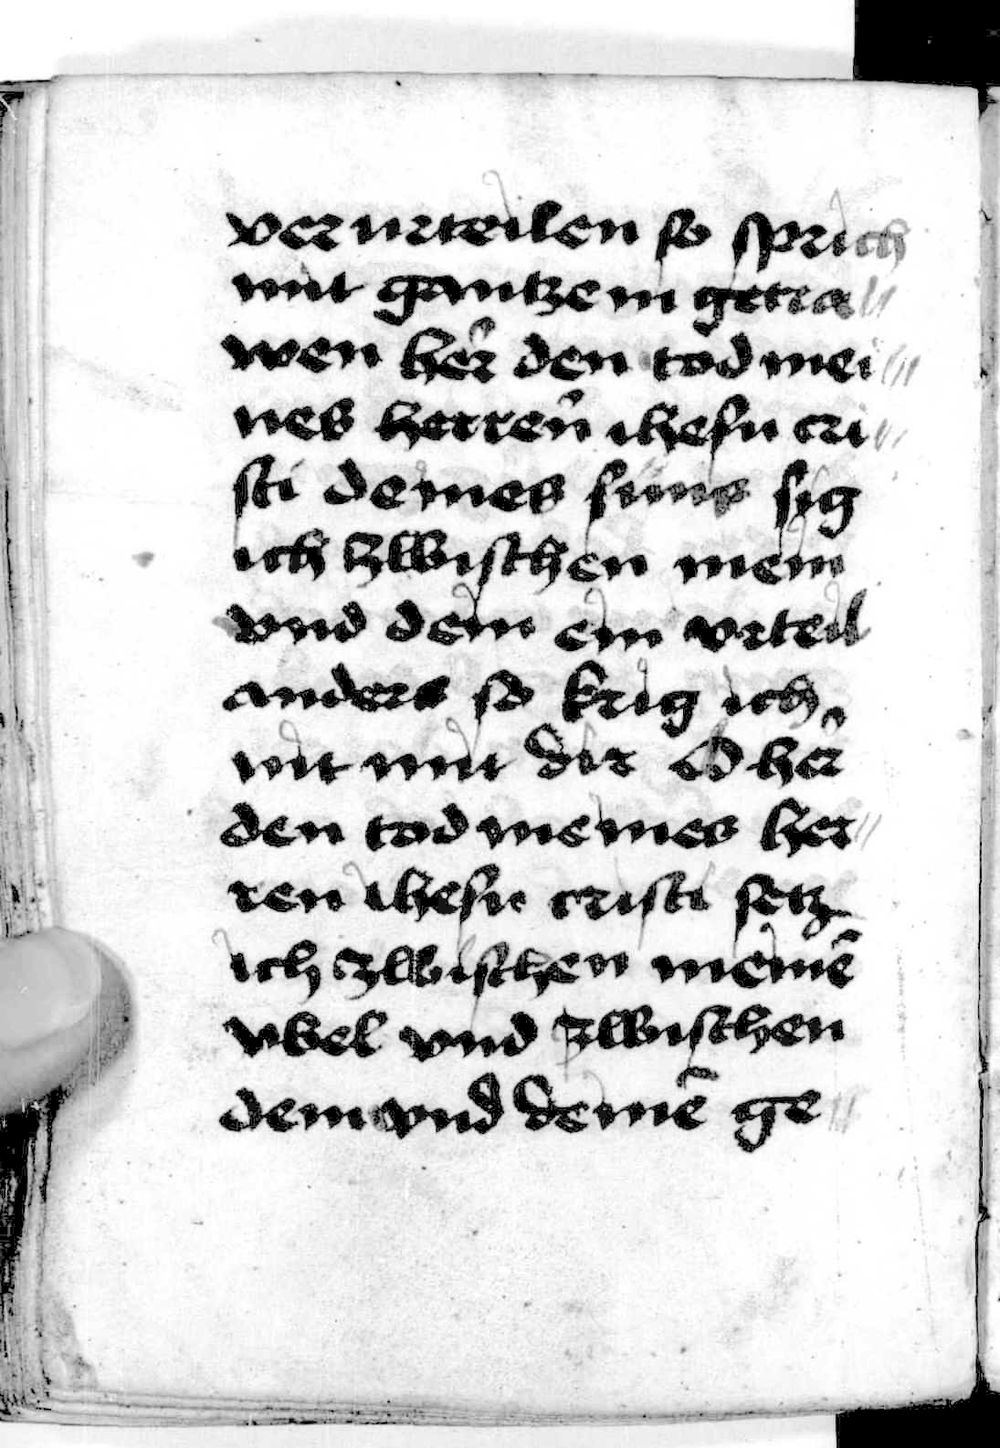 verurteilen so sprich
mit gantzem getra//
wen her̄ den tod mei///
nes herren̄ ihesu cri//
sti deines suns sig
ich zwischen mein
vnd dein ein vrteil
anders so krig ich
nit mit dir O her̄
den tod meines her//
ren ihesu cristi setz
ich zwischen meinē
vbel vnd zwischen
dem vnd deinē ge//